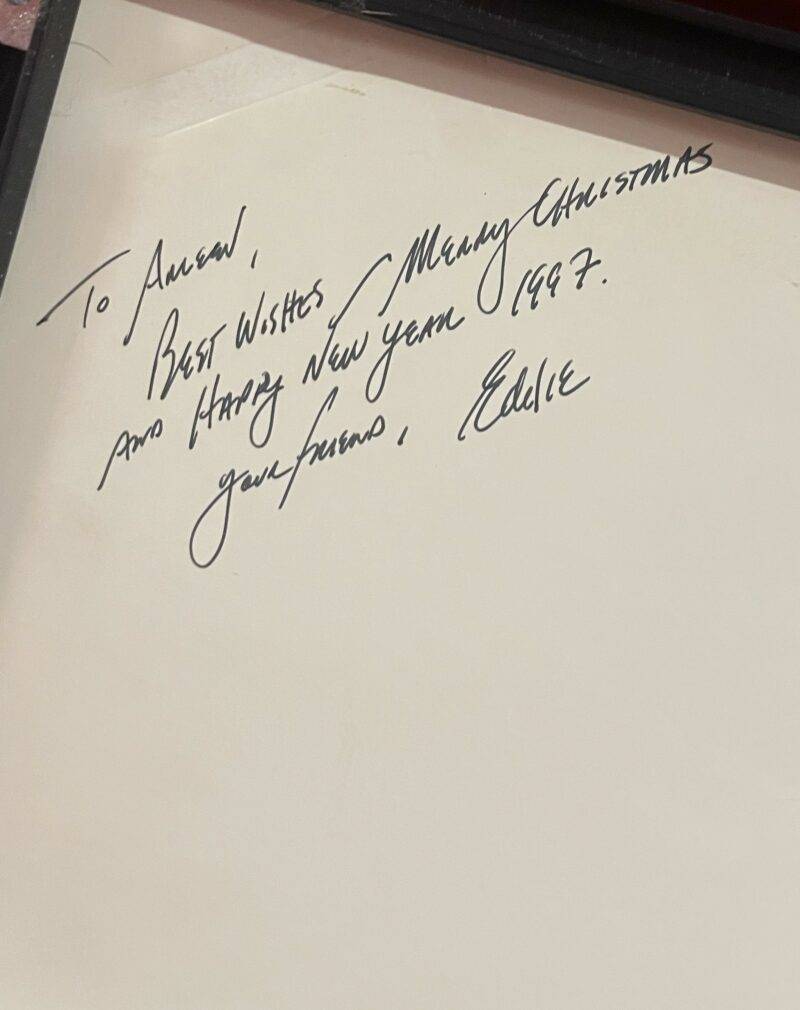 To Arleen,
Best Wishes, Merry Christmas
and Happy New Year 1997.
your friend, Eddie